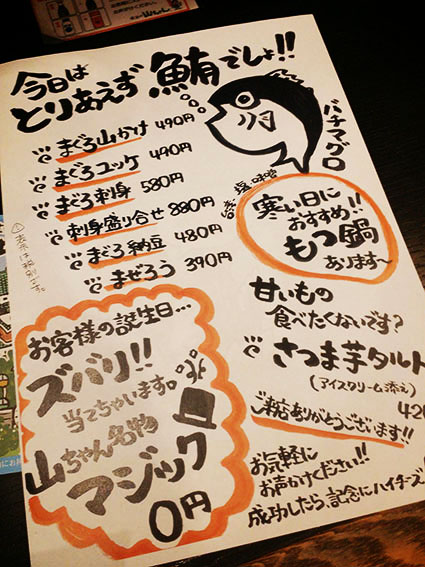 今日は
とりあえず 鮪でしょ!!
バチマグロ
まぐろ山かけ 490円
まぐろユッケ 490円
まぐろ刺身 580円
刺身盛り合せ 880円
まぐろ納豆 480円
まぜろう 390円
①表示は税別です。
塩・味噌
寒い日に
おすすめ!!
もつ鍋
あります〜
甘いもの
食べたくないです?
さつま芋タルト
(アイスクリーム添え)
420
ご来店ありがとうございます!!
お客様の誕生日...
ズバリ!!
当てちゃいます。
山ちゃん名物
マジック
0円
お気軽に
お声かけください!!
成功したら、記念にハイチーズ!